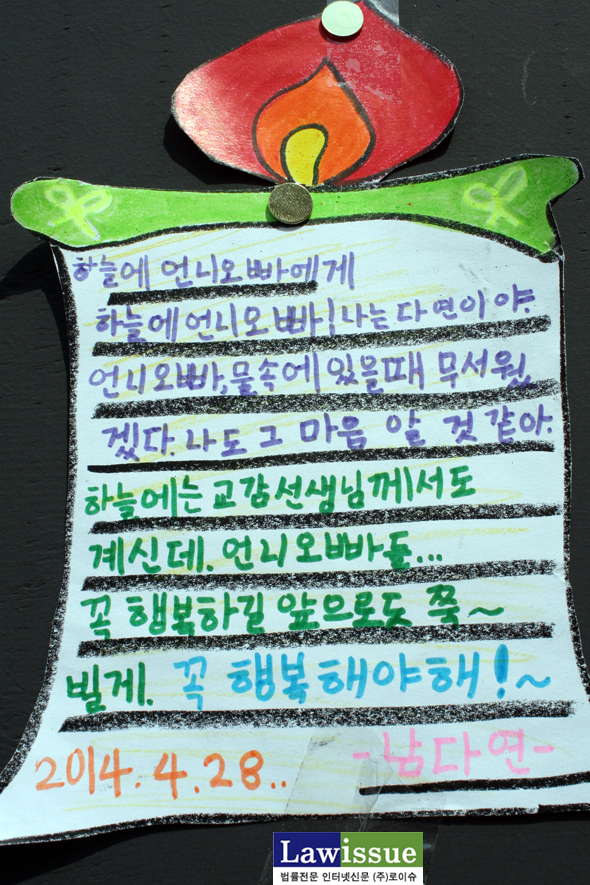 하늘에 언니오빠에게
하늘에언니오빠! 나는 다연이야.
언니오빠, 물속에 있을때 무서웠
겠다. 나도 그 마음 알 것 같아.
하늘에는 교감선생님께서도
계신데. 언니오빠들...
꼭 행복하길 앞으로도 쭉~
빌게. 꼭 행복해야해!~
2014.4.28..
-남다연-
Lawissue
법률전문 인터넷신문 (주)로이슈